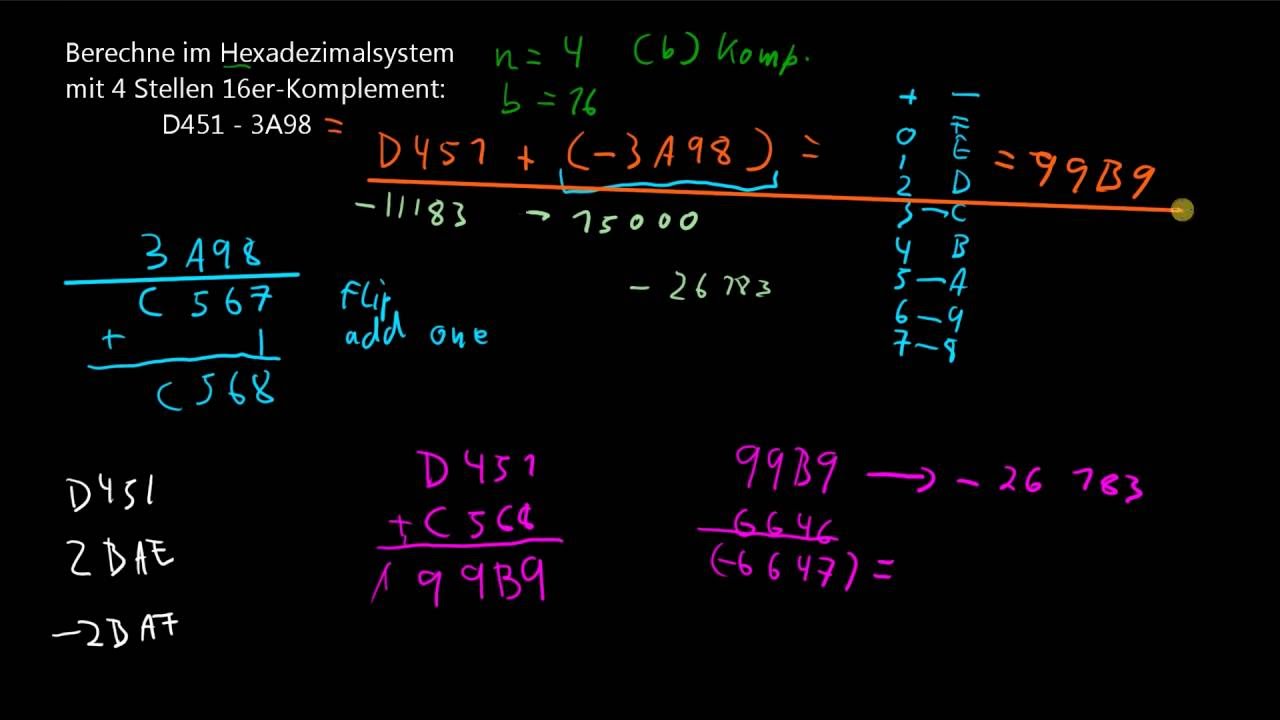 Berechne im Hexadezimalsystem
mit 4 Stellen 16er-Komplement:
D451 - 3A98 =
n = 4 (b) Komp.
b = 16
D451 + (-3A98) =
= 99B9
-11183 → 15000
- 26183
+ -
0 F
1 E
2 D
3 - C
4 B
5 - A
6 - 9
7 - 8
3A98
C567
+ 1
C568
Flip
add one
D451
2BAE
-2BAF
D451
+C568
199B9
99B9 → - 26 183
6646
(-6647) =